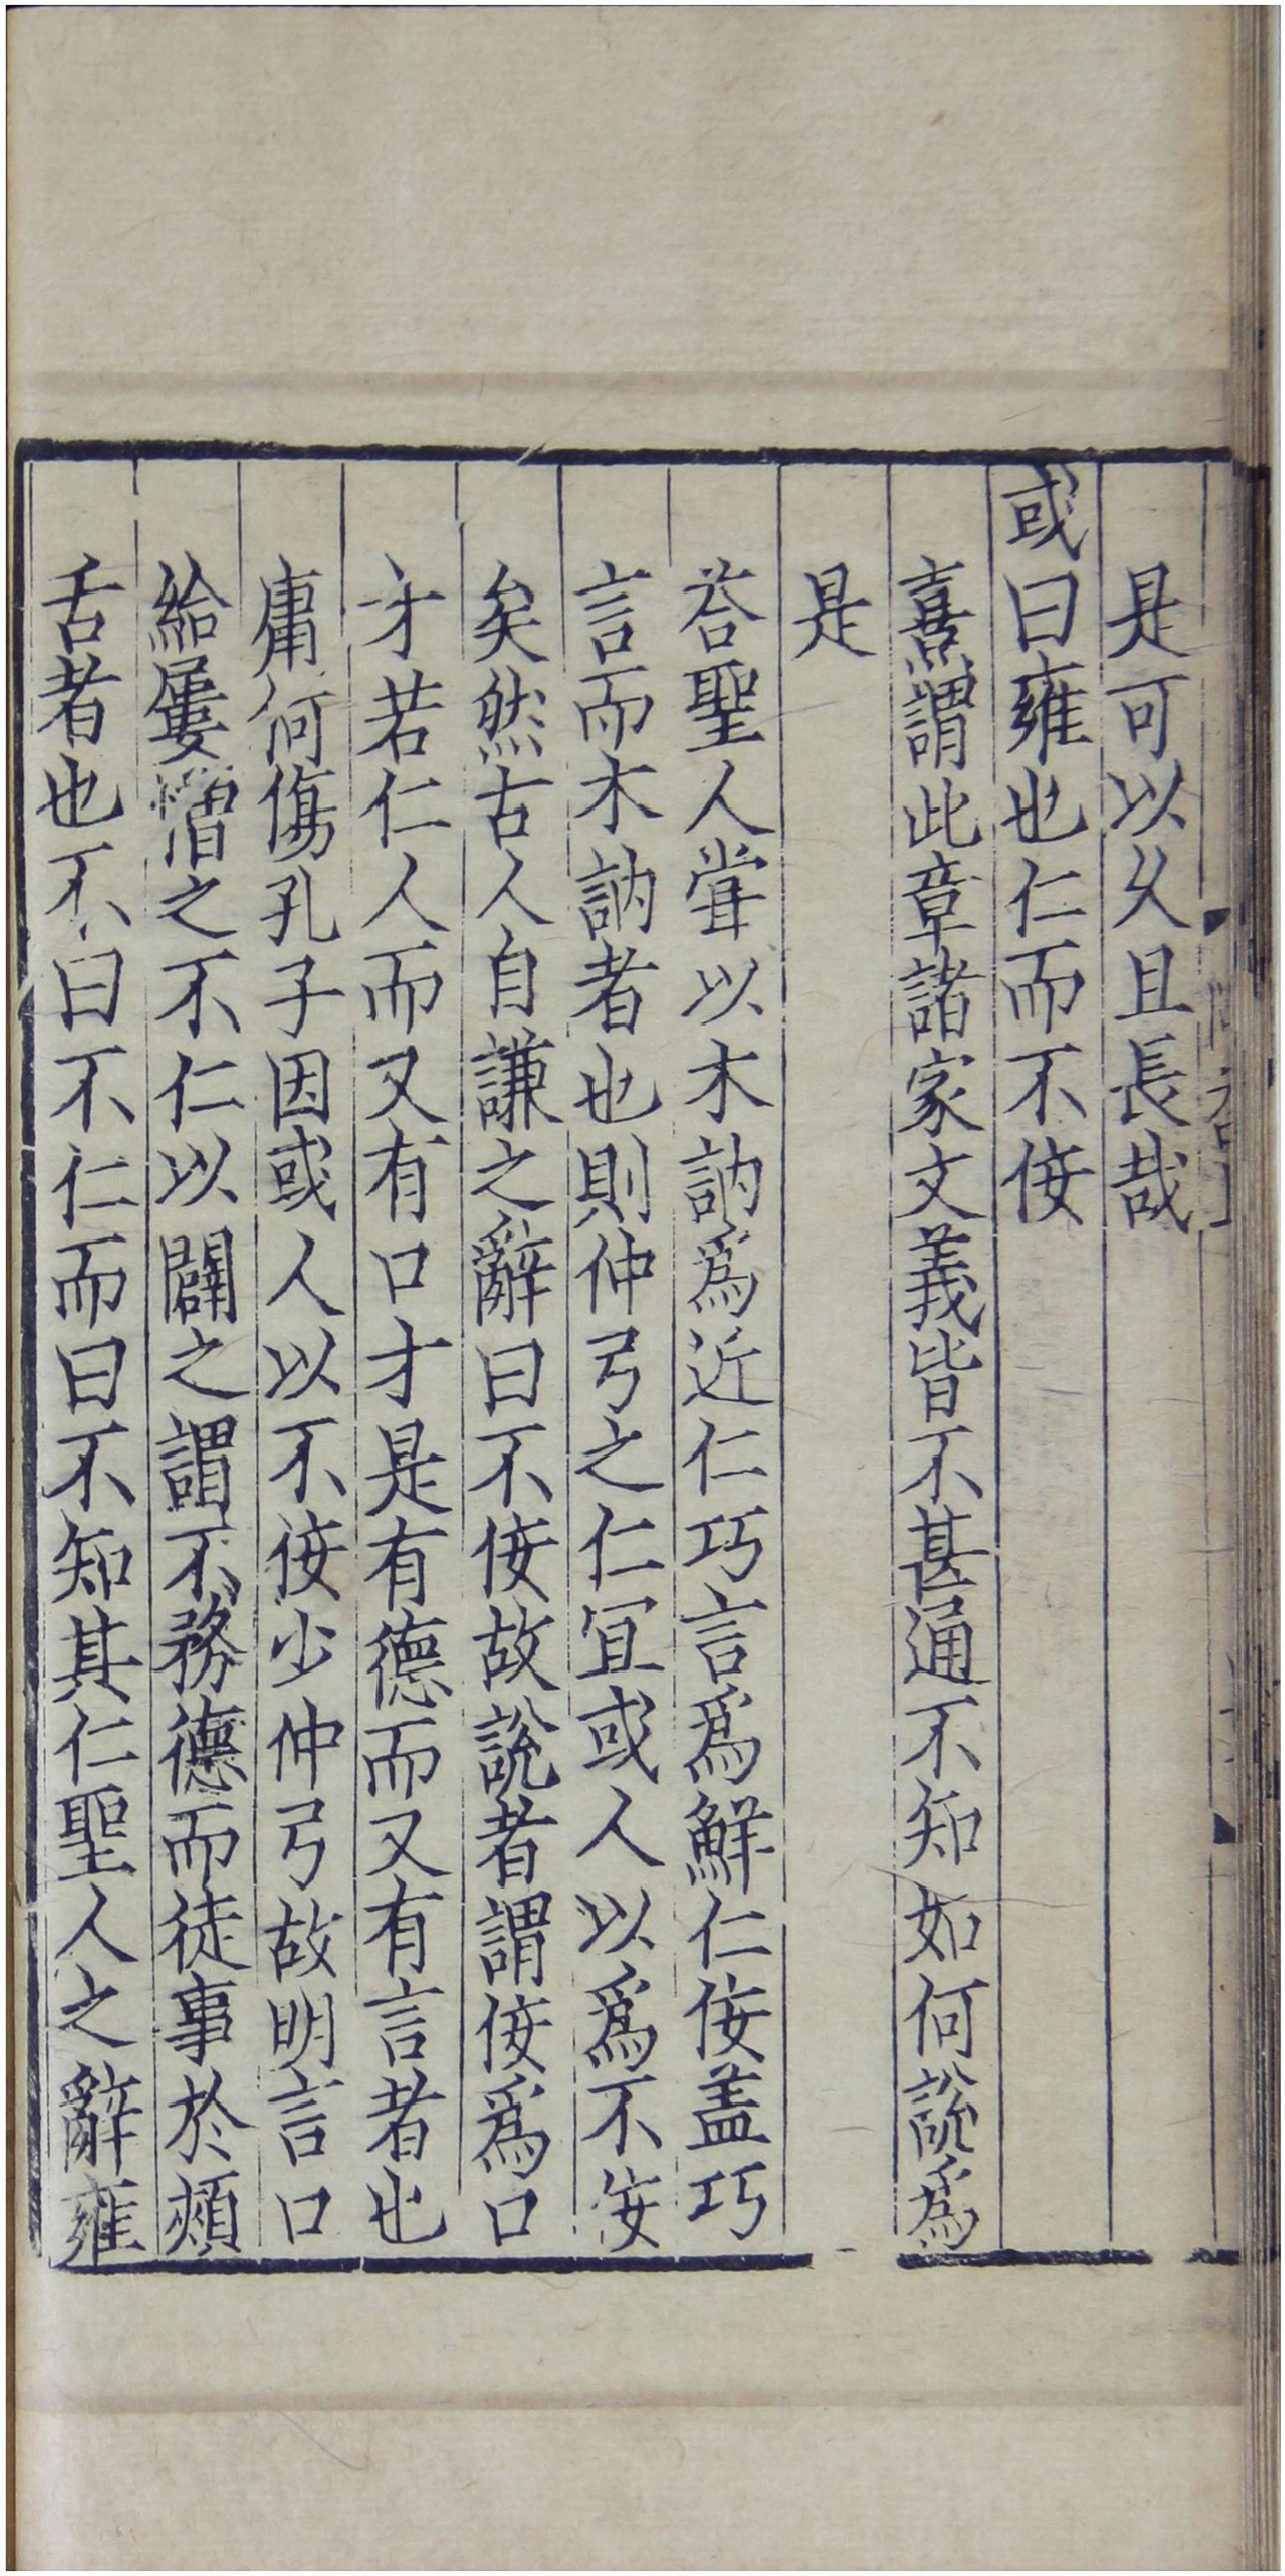 是可以乆且長哉
或曰雍也仁而不佞
熹謂此章諸家文義皆不甚通不知如何說爲
是
荅聖人甞以木訥爲近仁巧言爲鮮仁佞盖巧
言而木訥者也則仲弓之仁冝或人以爲不佞
矣然古人自謙之辭曰不佞故說者謂佞爲口
才若仁人而又有口才是有德而又有言者也
庸何傷孔子因或人以不佞少仲弓故明言口
給屢憎之不仁以闢之謂不務德而徒事於頰
舌者也不曰不仁而曰不知其仁聖人之辭雍